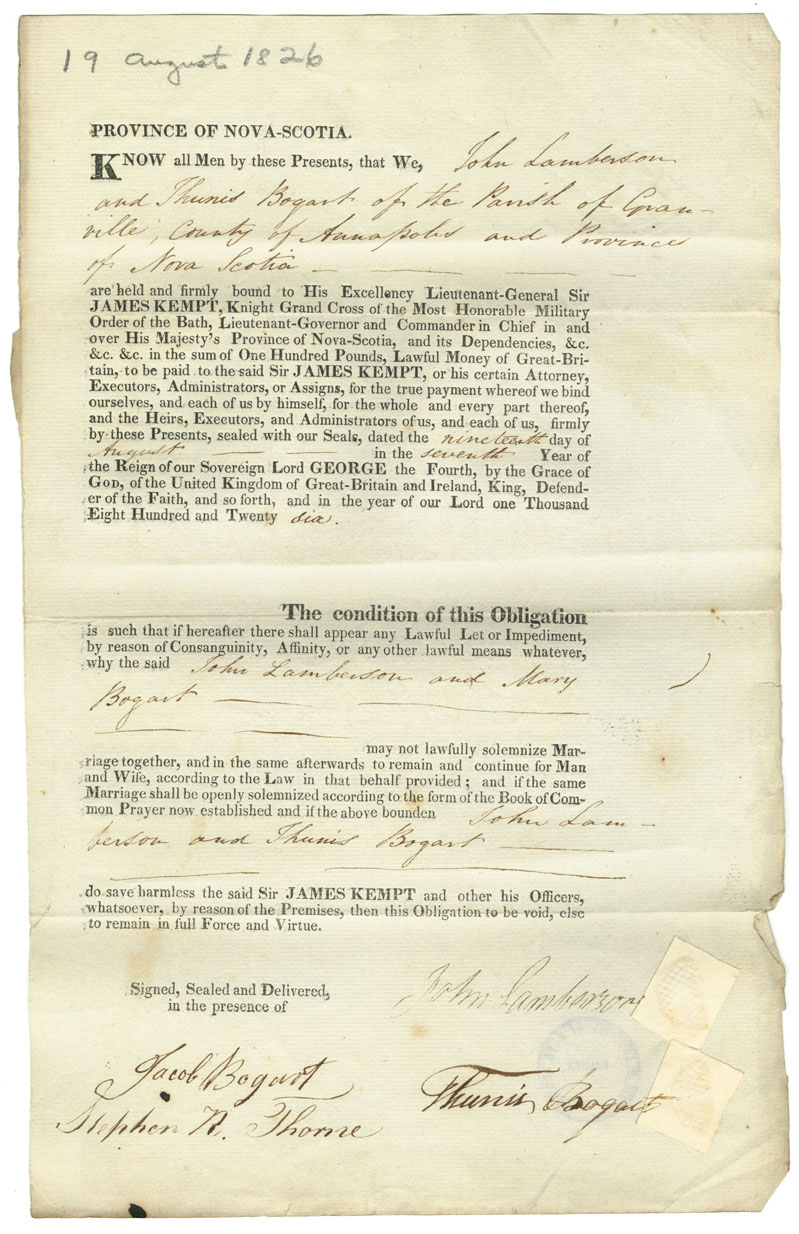 19 August 1826
PROVINCE OF NOVA-SCOTIA.
KNOW all Men by these Presents, that We, John Lamberson
and Thunis Bogart of the Parish of Gran-
ville, County of Annapolis and Province
of Nova Scotia
are held and firmly bound to His Excellency Lieutenant-General Sir
JAMES KEMPT, Knight Grand Cross of the Most Honorable Military
Order of the Bath, Lieutenant-Governor and Commander in Chief in and
over His Majesty's Province of Nova-Scotia, and its Dependencies, &c.
&c. &c. in the sum of One Hundred Pounds, Lawful Money of Great-Bri-
tain, to be paid to the said Sir JAMES KEMPT, or his certain Attorney,
Executors, Administrators, or Assigns, for the true payment whereof we bind
ourselves, and each of us by himself, for the whole and every part thereof,
and the Heirs, Executors, and Administrators of us, and each of us, firmly
by these Presents, sealed with our Seals, dated the nineteenth day of
August in the seventh Year of
the Reign of our Sovereign Lord GEORGE the Fourth, by the Grace of
GOD, of the United Kingdom of Great-Britain and Ireland, King, Defend-
er of the Faith, and so forth, and in the year of our Lord one Thousand
Eight Hundred and Twenty six.
The condition of this Obligation
is such that if hereafter there shall appear any Lawful Let or Impediment,
by reason of Consanguinity, Affinity, or any other lawful means whatever,
why the said John Lamberson and Mary
Bogart
may not lawfully solemnize Mar-
riage together, and in the same afterwards to remain and continue for Man
and Wife, according to the Law in that behalf provided; and if the same
Marriage shall be openly solemnized according to the form of the Book of Com-
mon Prayer now established and if the above bounden John Lam-
berson and Thunis Bogart
do save harmless the said Sir JAMES KEMPT and other his Officers,
whatsoever, by reason of the Premises, then this Obligation to be void, else
to remain in full Force and Virtue.
Signed, Sealed and Delivered,
in the presence of
John Lamberson
Jacob Bogart
Thunis Bogart
Stephen R. Thorne